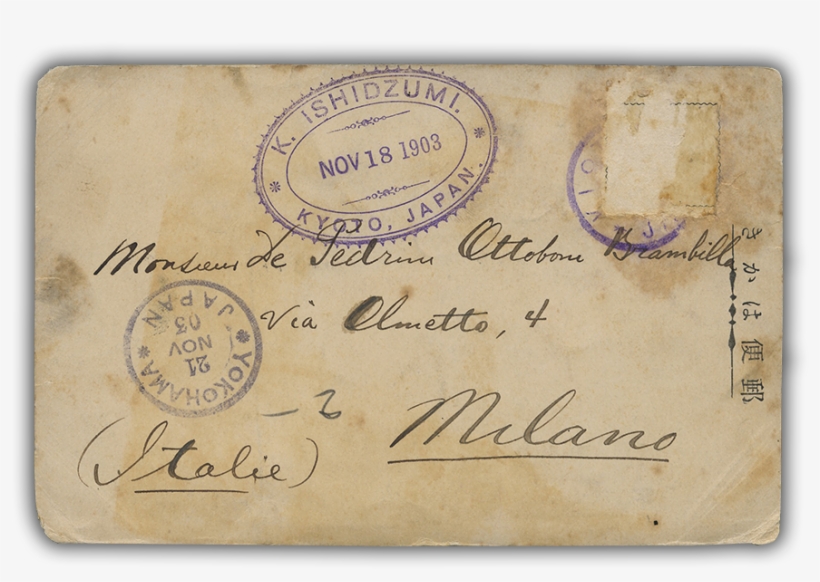 K. ISHIDZUMI.
NOV 18 1903
KYOTO, JAPAN.
Monsieur De Pedrini Ottoboni Brambilla
Via Olmetto, 4
Milano
(Italie)
YOKOHAMA
21
NOV
03
JAPAN
きかは便郵